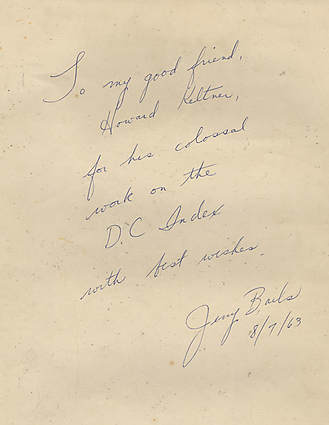 To my good friend,
Howard Keltner,
for his colossal
work on the
D.C Index
with best wishes.
Jerry Bails
8/7/63